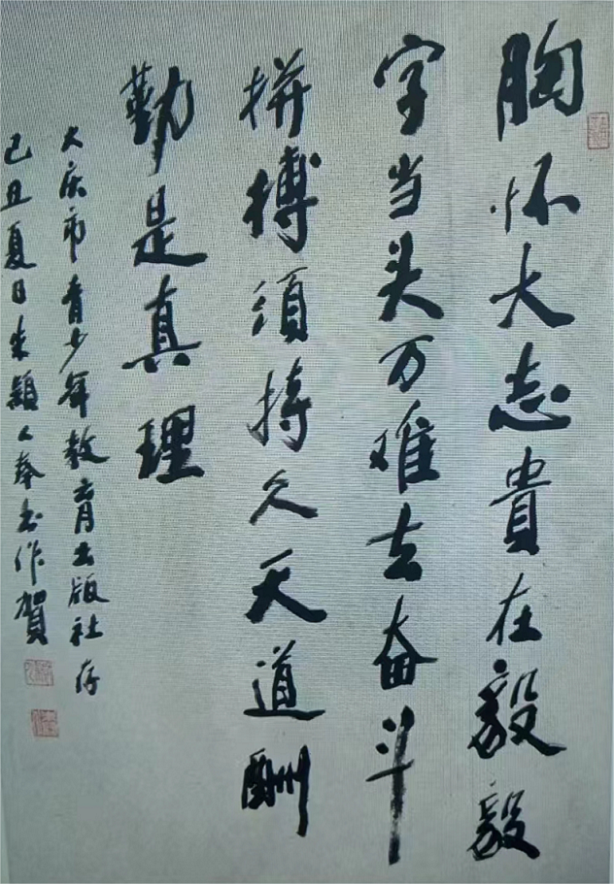 胸怀大志貴在毅毅
字当头万难去奋斗
拼搏須持久天道酬
勤是真理
大庆市青少年教育出版社存
己丑夏日朱穎人奉书作賀